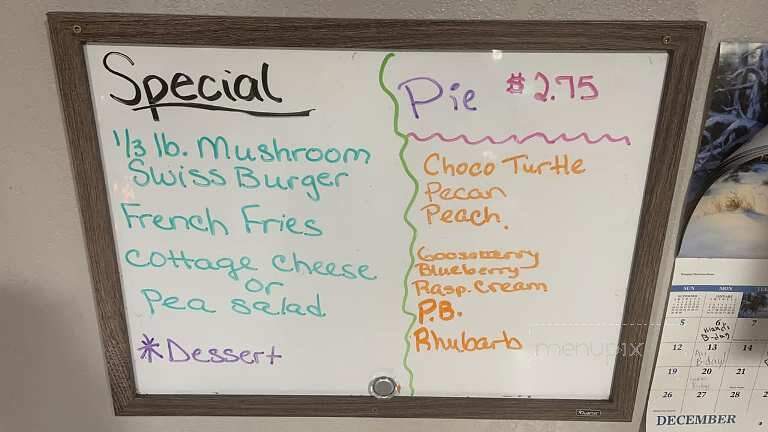 Special
1/3 lb. Mushroom
Swiss Burger
French Fries
Cottage Cheese
or
Pea salad
*Dessert
Pie $2.75
Choco Turtle
Pecan
Peach.
Gooseberry
Blueberry
Rasp. Cream
P.B.
Rhubarb
menupix
SUN MON
5 6 7
B-day
12 13 14
B-day
19 20 21
26 27 28
DECEMBER